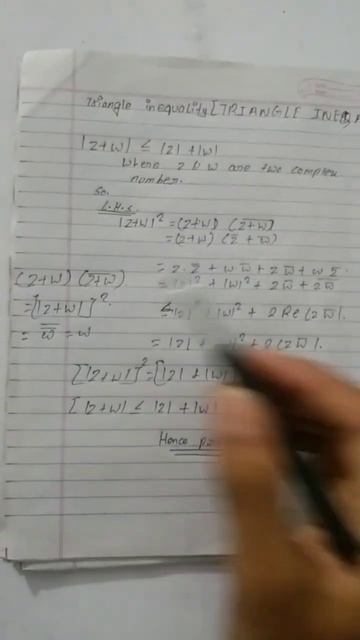 Triangle inequality [TRIANGLE INEQ
|z+w| ≤ |z| + |w|
where z & w are two complex
number.
so.
L.H.S
|z+w|² = (z+w) (z̅+̅w̅)
= (z+w) (z̅ + w̅)
= z.z̅ + w w̅ + z w̅ + w z̅
+ |w|² + z w̅ + z̅ w
(z+w) (z̅+̅w̅)
= [|z+w|]².
= w̿ = w
≤ |z|² + |w|² + 2 Re (z w̅).
= |z| + ² + 2 (z w̅).
[|z+w|]² = [|z| + |w|]
[|z+w| ≤ |z| + |w|
Hence